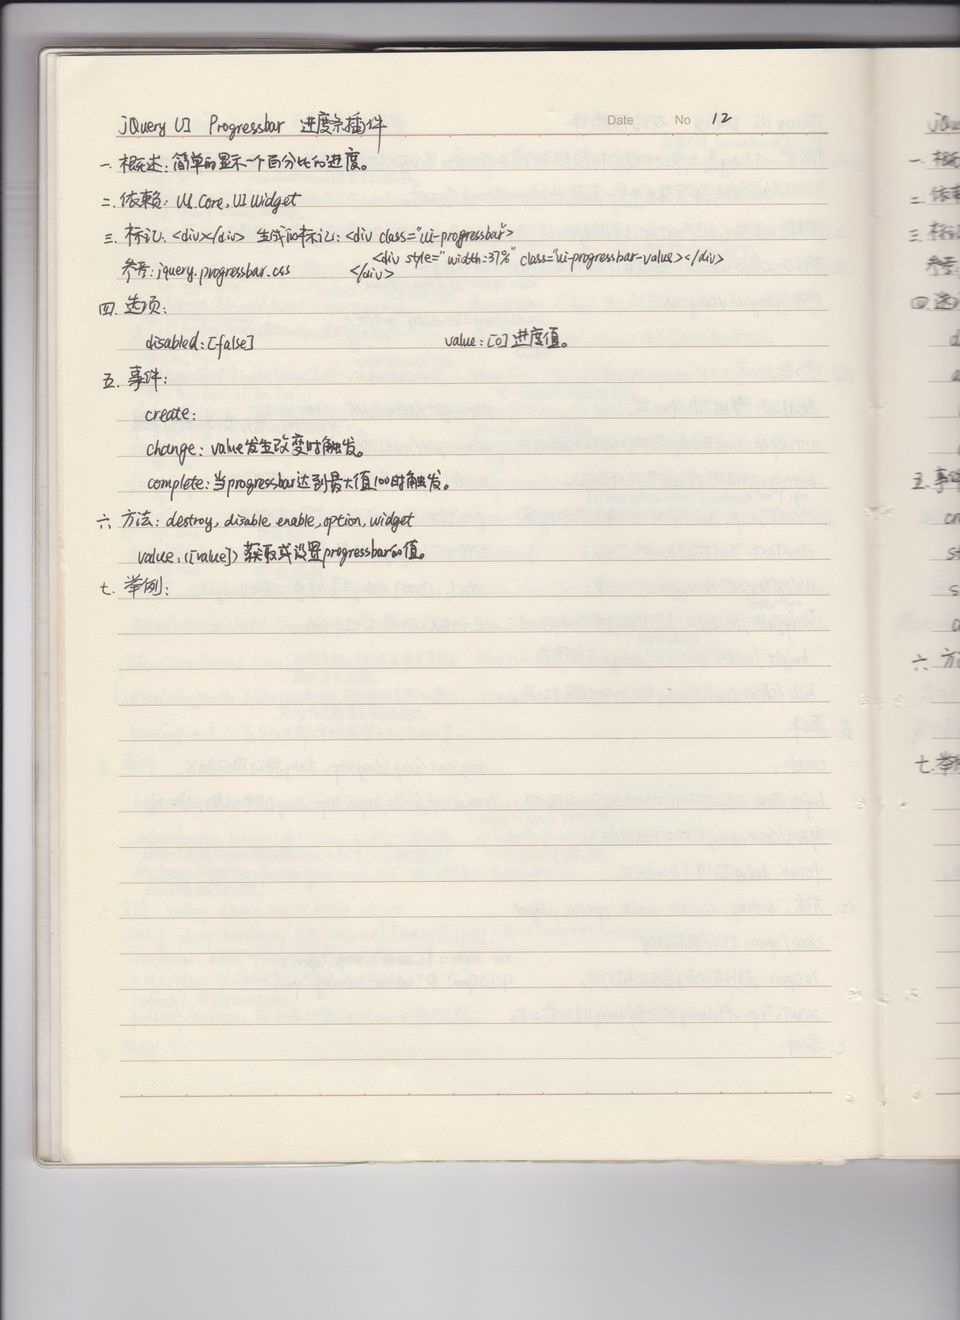 jQuery UI Progressbar 进度条插件
Date No 12
一. 概述: 简单的显示一个百分比的进度。
二. 依赖: UI Core, UI Widget
三. 标记: <div></div> 生成的标记: <div class="ui-progressbar">
<div style="width:37%" class="ui-progressbar-value></div>
参考: jquery.progressbar.css </div>
四. 选项:
disabled: [false] value: [0] 进度值。
五. 事件:
create:
change: value发生改变时触发。
complete: 当progressbar达到最大值100时触发。
六. 方法: destroy, disable, enable, option, widget
value, ([value]) 获取或设置progressbar的值。
七. 举例: